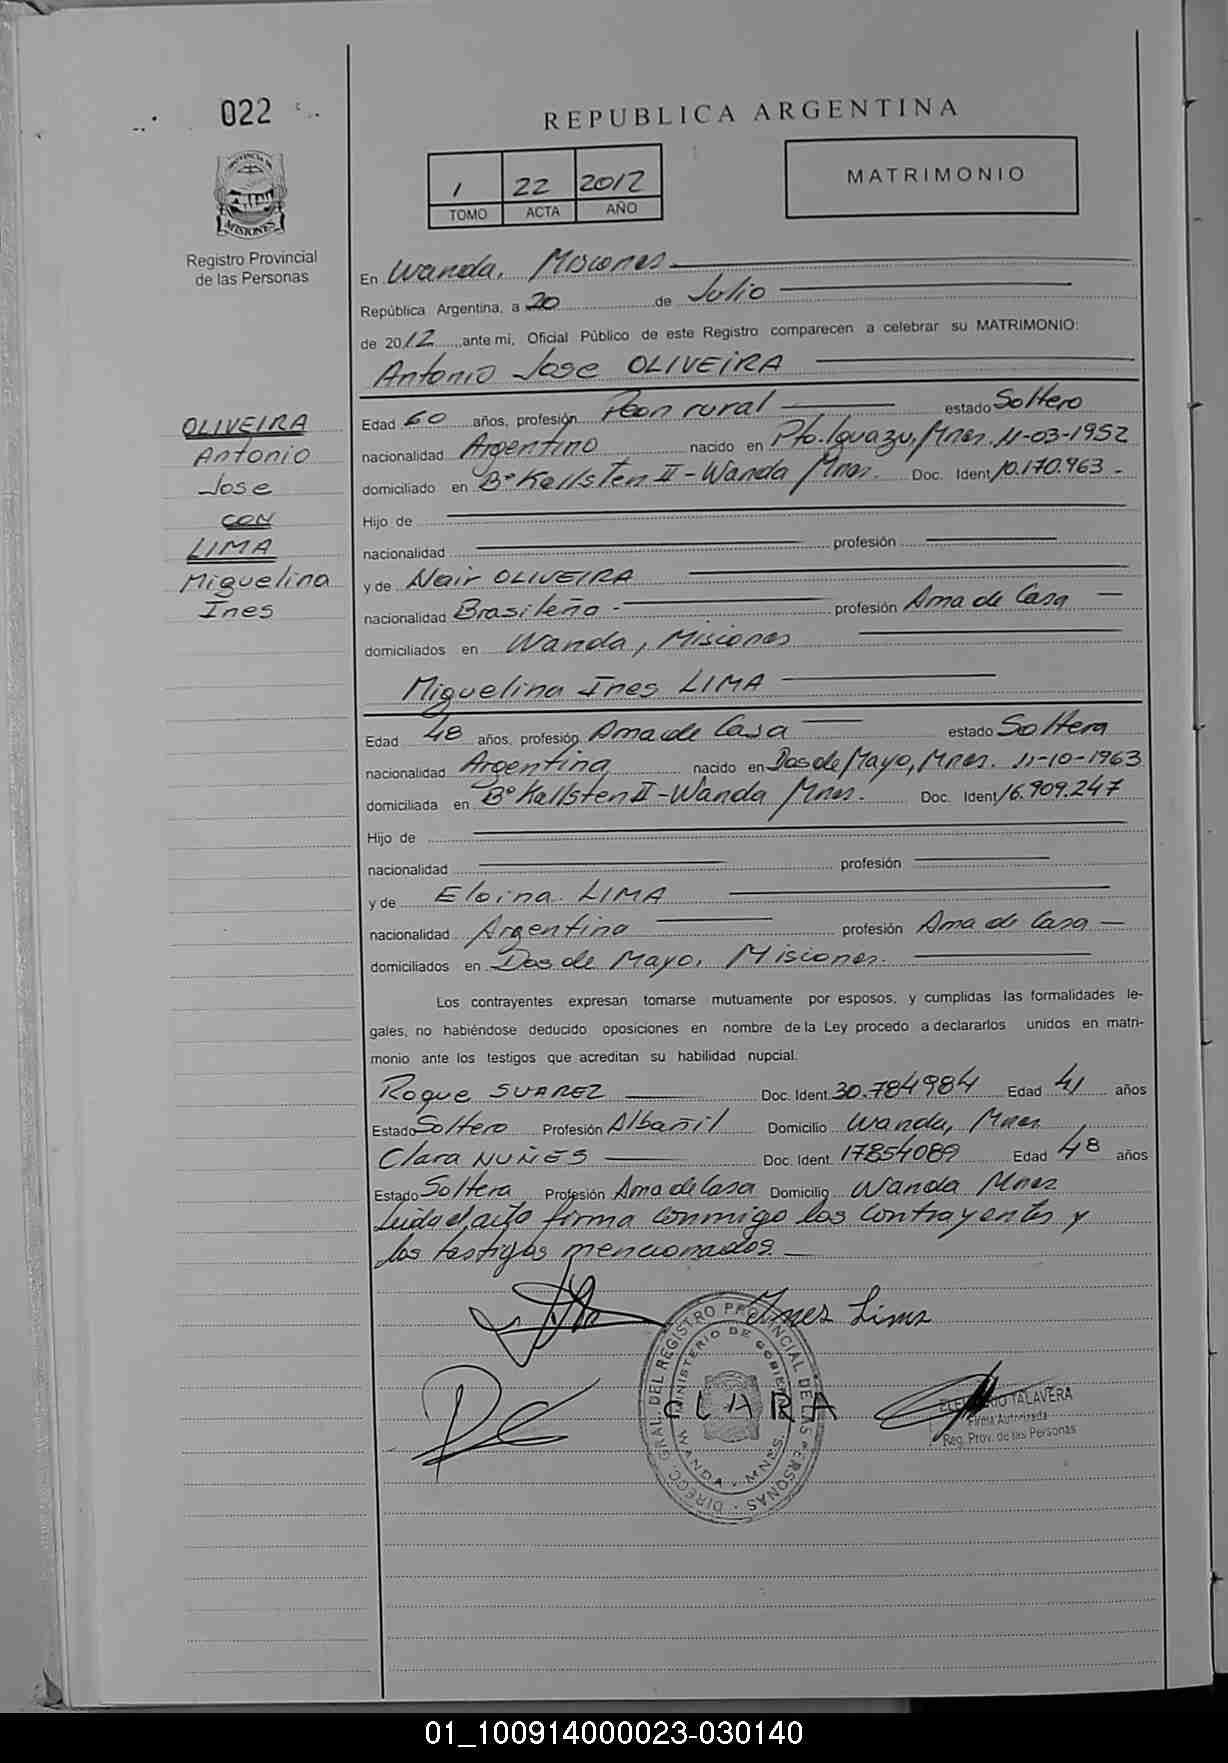 022
REPUBLICA ARGENTINA
1 22 2012
TOMO ACTA AÑO
MATRIMONIO
PROVINCIA DE
MISIONES
Registro Provincial
de las Personas
En Wanda, Misiones
República Argentina, a 20 de Julio
de 2012, ante mi, Oficial Público de este Registro comparecen a celebrar su MATRIMONIO:
Antonio Jose OLIVEiRA
OLIVEIRA
Antonio
Jose
CON
LIMA
Miguelina
Ines
Edad 60 años, profesión Peon rural estado Soltero
nacionalidad Argentino nacido en Pto. Iguazu, Mnes. 11-03-1952
domiciliado en B° Kallsten II - Wanda Mnes. Doc. Ident. 10.170.963 -
Hijo de
nacionalidad profesión
y de Nair OLIVEIRA
nacionalidad Brasileña - profesión Ama de Casa
domiciliados en Wanda, Misiones
Miguelina Ines LIMA
Edad 48 años, profesión Ama de Casa estado Soltera
nacionalidad Argentina nacido en Dos de Mayo, Mnes. 11-10-1963
domiciliada en B° Kallsten II - Wanda Mnes. Doc. Ident. 16.909.247
Hijo de
nacionalidad profesión
y de Eloina LIMA
nacionalidad Argentina profesión Ama de Casa
domiciliados en Dos de Mayo, Misiones.
Los contrayentes expresan tomarse mutuamente por esposos, y cumplidas las formalidades le-
gales, no habiéndose deducido oposiciones en nombre de la Ley procedo a declararlos unidos en matri-
monio ante los testigos que acreditan su habilidad nupcial.
Roque SUAREZ Doc. Ident. 30.784984 Edad 41 años
Estado Soltero Profesión Albañil Domicilio Wanda, Mnes
Clara NUÑES Doc. Ident. 17854089 Edad 48 años
Estado Soltera Profesión Ama de Casa Domicilio Wanda Mnes
Leida el acta firma conmigo los contrayentes y
los testigos mencionados.
Ines Lima
CLARA
DIRECC. GRAL. DEL REGISTRO PROVINCIAL DE LAS PERSONAS
MINISTERIO DE GOBIERNO
WANDA - MNES.
TALAVERA
Firma Autorizada
Reg. Prov. de las Personas
01_100914000023-030140